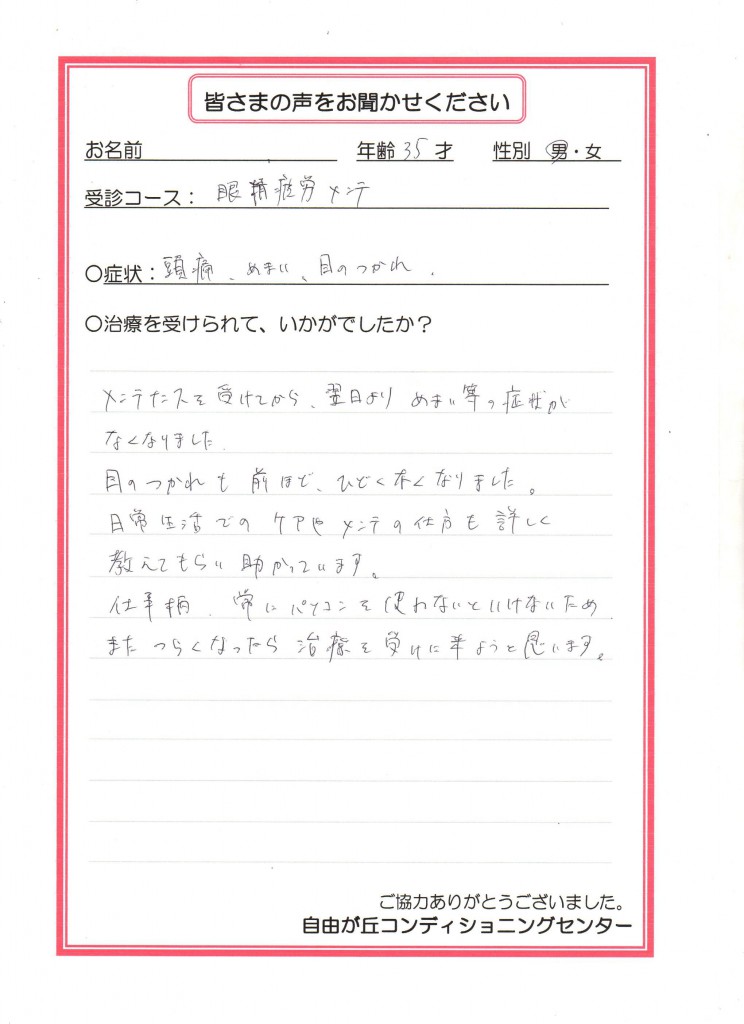 皆さまの声をお聞かせください
お名前 年齢 35 才 性別 男・女
受診コース： 眼精疲労メンテ
〇症状：頭痛、めまい、目のつかれ.
〇治療を受けられて、いかがでしたか？
メンテナンスを受けてから、翌日より めまい等の症状が
なくなりました.
目のつかれも 前ほど、ひどくなくなりました。
日常生活での ケアや メンテの仕方も 詳しく
教えてもらい 助かっています。
仕事柄、常に パソコンを使わないといけないため
また つらくなったら 治療を受けに来ようと思います。
ご協力ありがとうございました。
自由が丘コンディショニングセンター